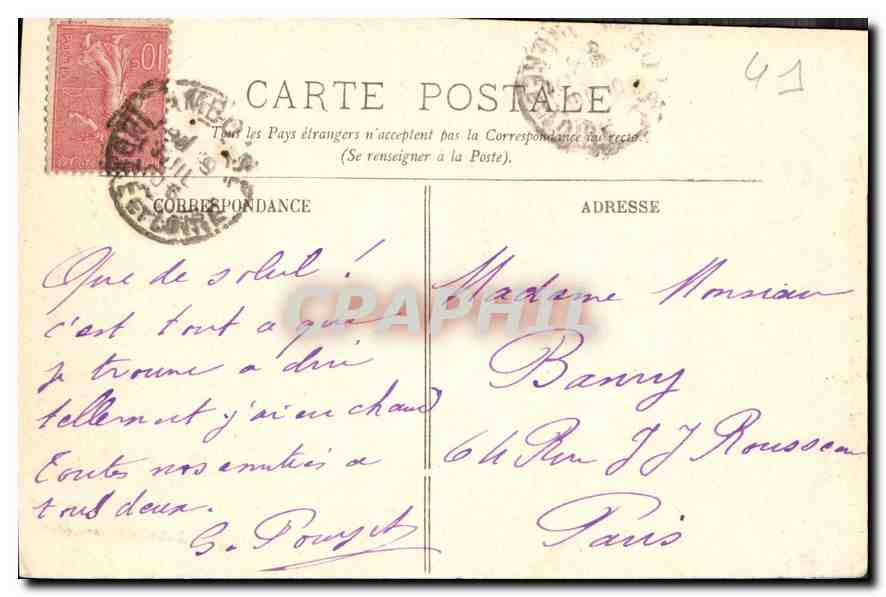 41
CARTE POSTALE
Tous les Pays étrangers n'acceptent pas la Correspondance au recto.
(Se renseigner à la Poste).
CORRESPONDANCE
Que de soleil !
c'est tout ce que
je trouve a dire
tellement j'ai eu chaud
Toutes nos amitiés a
tous deux.
G.
ADRESSE
Madame Monsieur
64 Rue J J Rousseau
Paris
CPAPHIL
10
ET LOIRE